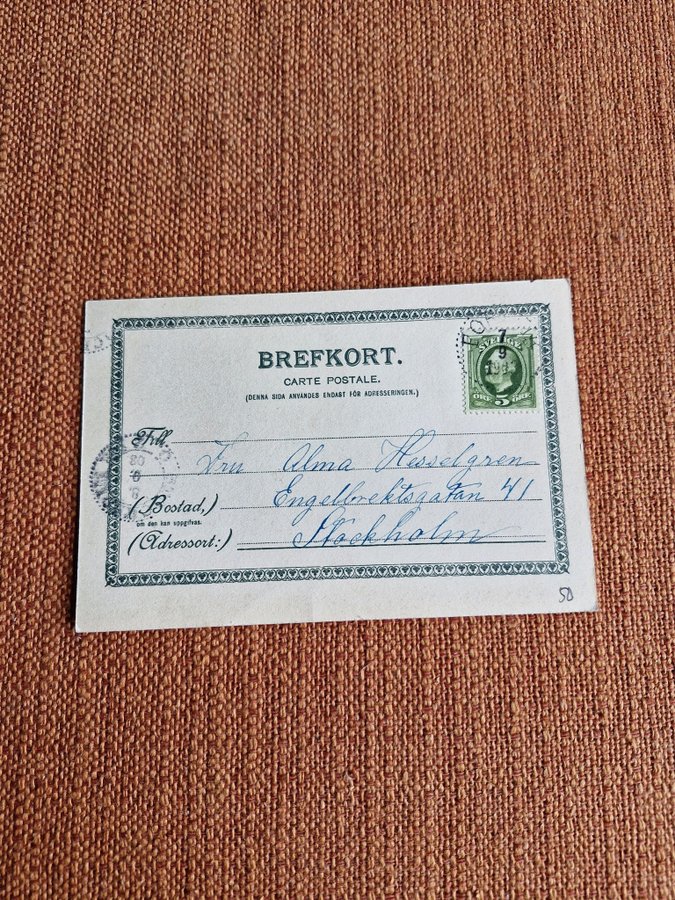 BREFKORT.
CARTE POSTALE.
(DENNA SIDA ANVÄNDES ENDAST FÖR ADRESSERINGEN.)
7
9
SVERIGE
ÖRE 5 ÖRE
Till
Fru Alma Hesselgren
(Bostad,) Engelbrektsgatan 41
om den kan uppgifvas.
(Adressort:) Stockholm
50